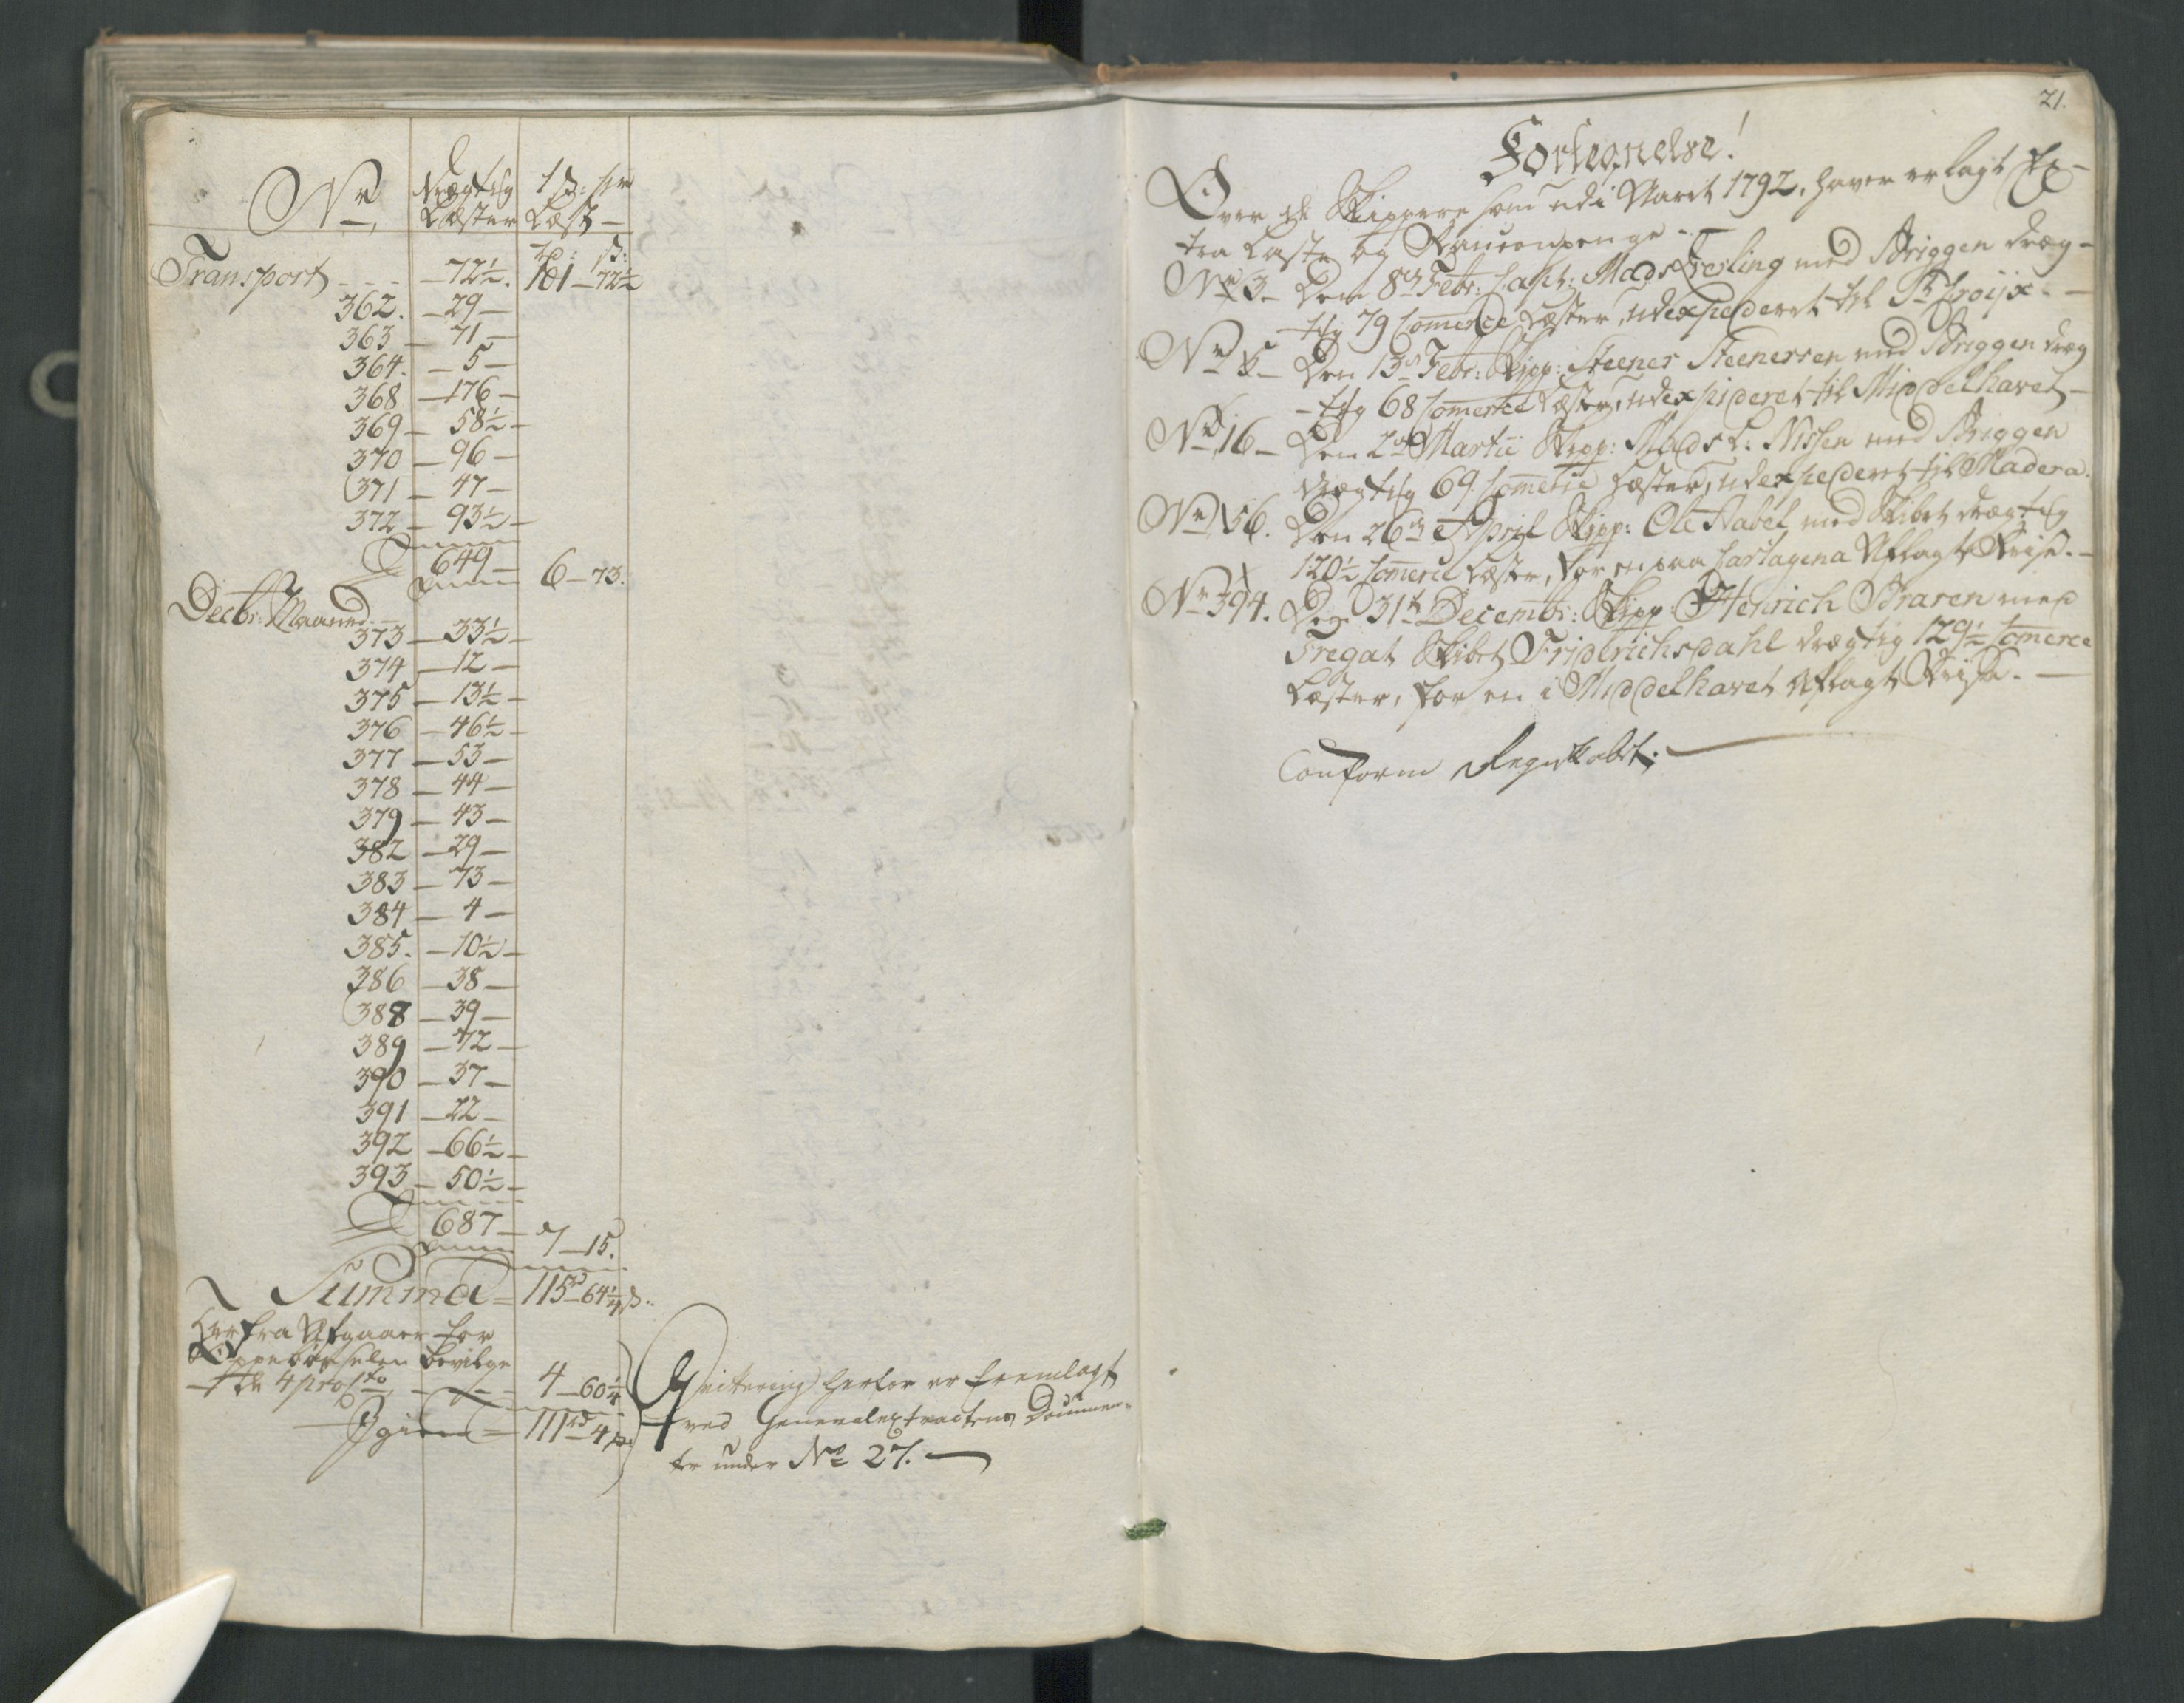 No. Drægtig 1 ß: per
Læster Læst
rd: ß:
Transport - - - 72½. 101 - 72½
362. - 29 -
363 - 71 -
364. - 5 -
368 - 176 -
369 - 58½ -
370 - 96 -
371 - 47 -
372 - 93½ -
649 - 6 - 73.
Decbr: Maaned -
373 - 33½ -
374 - 12 -
375 - 13½ -
376 - 46½ -
377 - 53 -
378 - 44 -
379 - 43 -
382 - 29 -
383 - 73 -
384 - 4 -
385. - 10½ -
386 - 38 -
388 - 39 -
389 - 72 -
390 - 37 -
391 - 22 -
392 - 66½ -
393 - 50½ -
687 - 7 - 15.
Summa = 115rd - 64¼ ß.
Herfra Afgaaer for
Oppebørselen bevilge
-de 4 proCto - - - 4 - 60¼
Igien = 111rd - 4 ß.
Qvitering herfor er fremlagt
ved Generalextractens Documen=
ter under No 27. -
21.
Fortegnelse!
Over de Skippere som udi Aaret 1792, haver erlagt Ex-
tra Laste og Rancenpenge -
No 3 - Den 8de Febr: Capt: Mads Terling med Briggen dræg-
-tig 79 Comerce Læster, udexpederet til St Croijx. -
No 5 - Den 13de Febr: Skipp: Steener Steenersen med Briggen dræg
-tig 68 Comerce Læster, udexpideret til Middelhavet -
No 16 - Den 2de Martii Skipp: Mads L. Nissen med Briggen
drægtig 69. Comerce Læster, udexpederet til Madera.
No 56. Den 26de April Skipp: Ole Nabel med Skibet drægtig
120½ Comerce Læster, for en paa Cartagena Aflagt Reise. -
No 394. Den 31te Decembr: Skipp: Henrich Braren med
Fregat Skibet Friderichsdahl drægtig 129½ Comerce
Læster, for en i Middelhavet Aflagt Reise. -
Conform Regnskabet;